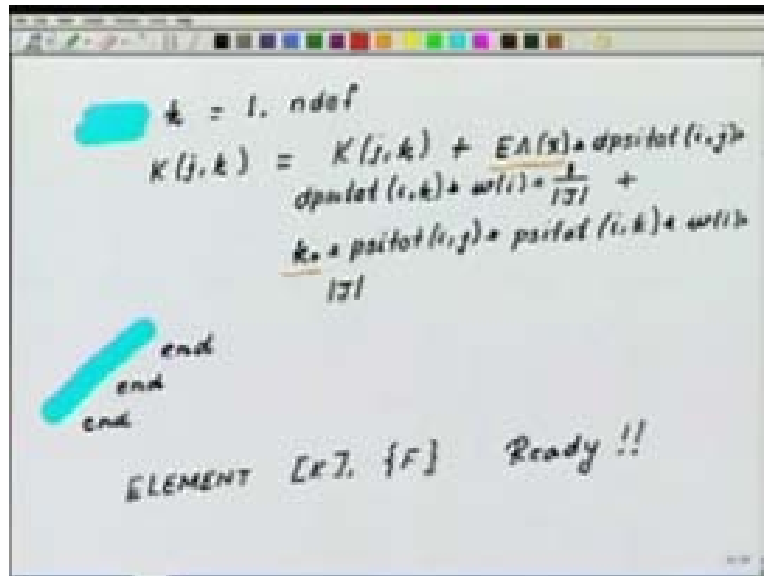 k = 1, ndof
K(j,k) = K(j,k) + EA(x) * dpsitot(i,j) *
dpsitot(i,k) * w(i) * 1/|J| +
k₀ * psitot(i,j) * psitot(i,k) * w(i) *
|J|
end
end
end
ELEMENT [K], {F} Ready !!